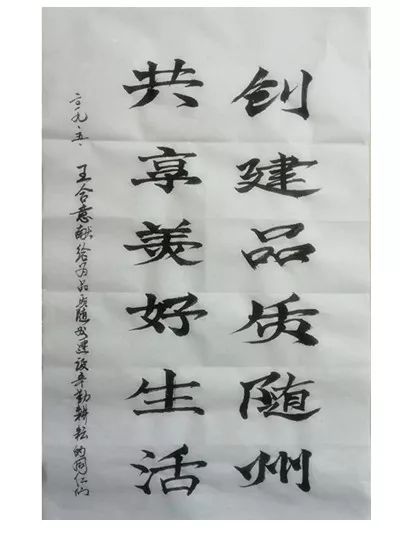 创建品质随州
共享美好生活
二〇一九.五.
王合意献给为品质随州建设辛勤耕耘的同仁们